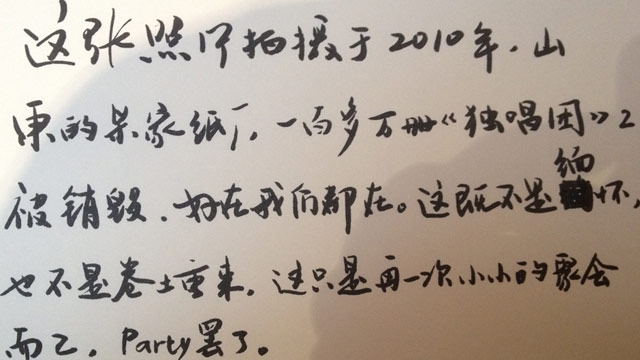 这张照片拍摄于2010年.山
东的某家纸厂,一百多万册《独唱团》2
被销毁.好在我们都在。这既不是缅怀,
也不是卷土重来.这只是再一次小小的聚会
而已.Party罢了。